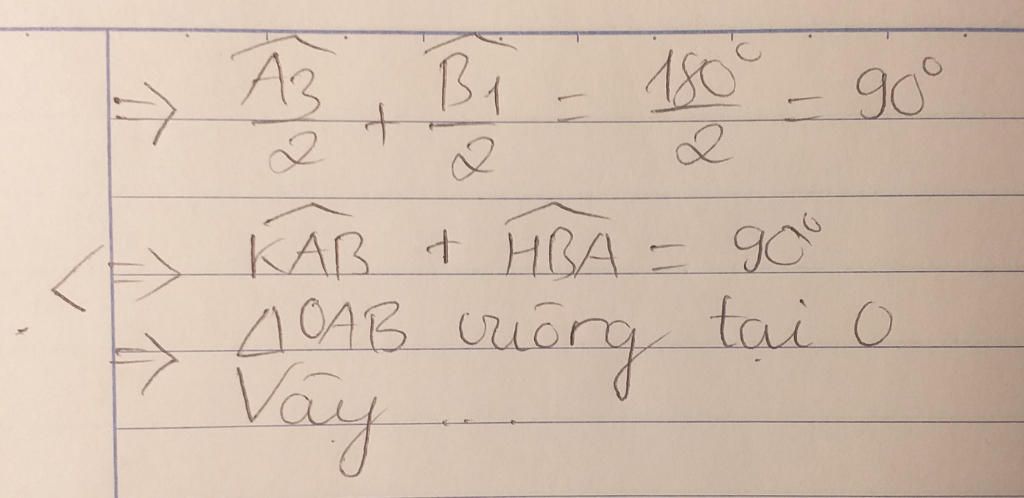 ⇒ \frac{\widehat{A_3}}{2} + \frac{\widehat{B_1}}{2} = \frac{180°}{2} = 90°
<⇒ \widehat{KAB} + \widehat{HBA} = 90°
⇒ ΔOAB vuông tại O
Vậy ....